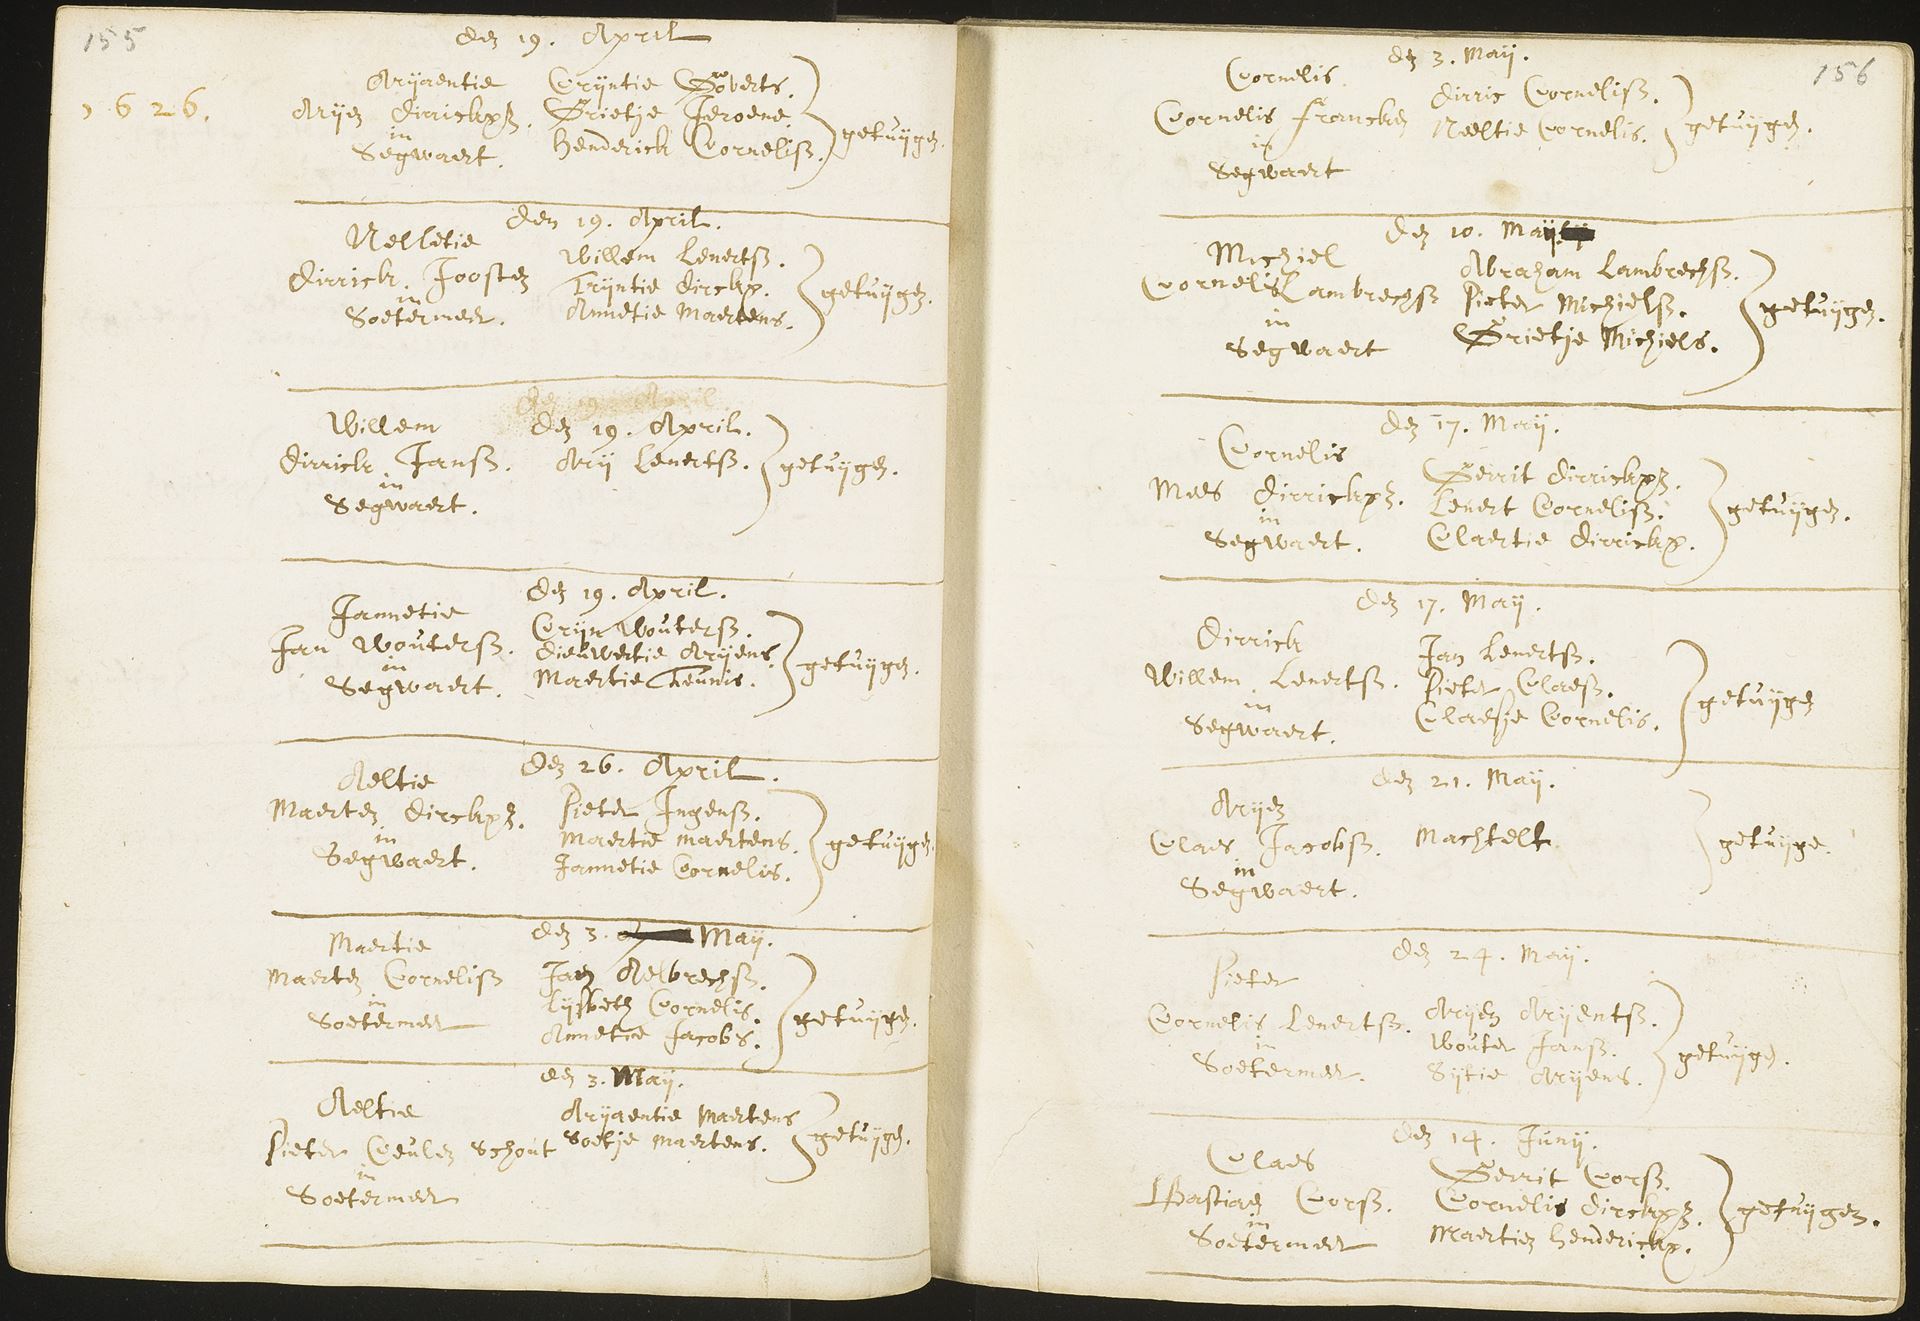 155
1626.
den 19. April
Aryaentie
Aryen Dirrickxz.
in
Segwaert.
Cryntie Goverts.
Grietje Jeroens.
Henderick Corneliss.
getuygen.
den 19. April.
Nelletie
Dirrick Joosten
in
Soetermeer.
Willem Lenertss.
Tryntie Dirckx.
Annetie Maertens.
getuygen.
den 19. April
Willem
Dirrick Janss.
in
Segwaert.
den 19. April.
Ary Lenertss.
getuygen.
den 19. April.
Jannetie
Jan Wouterss.
in
Segwaert.
Cryn Wouterss.
Dieuwertie Aryens.
Maertie Teunis.
getuygen.
den 26. April.
Aeltie
Maerten Dirckxz.
in
Segwaert.
Pieter Ingenss.
Maertie Maertens.
Jannetie Cornelis.
getuygen.
den 3. May.
Maertie
Maerten Corneliss
in
Soetermeer
Jan Aelbrechss.
Lysbeth Cornelis.
Annetie Jacobs.
getuygen.
den 3. May.
Aeltie
Pieter Ceulen Schout
in
Soetermeer
Aryaentie Maertens
Soetje Maertens.
getuygen.
156
den 3. May.
Cornelis
Cornelis Francken
in
Segwaert
Dirric Corneliss.
Neeltie Cornelis.
getuygen.
den 10. May
Michiel
Cornelis Lambrechss
in
Segwaert
Abraham Lambrechss.
Pieter Michielss.
Grietje Michiels.
getuygen.
den 17. May.
Cornelis
Mees Dirrickxz.
in
Segwaert.
Gerrit Dirrickxz.
Lenert Corneliss.
Claertie Dirrickx.
getuygen.
den 17. May.
Dirrick
Willem Lenertss.
in
Segwaert.
Jan Lenertss.
Pieter Claess.
Claesje Cornelis.
getuygen
den 21. May.
Aryen
Claes Jacobss.
in
Segwaert.
Machtelt.
getuyge.
den 24. May.
Pieter
Cornelis Lenertss.
in
Soetermeer.
Aryen Aryentss.
Wouter Janss.
Sytie Aryens.
getuygen.
den 14. Juny.
Claes
Bastiaen Corss.
in
Soetermeer
Gerrit Corss.
Cornelis Dirckxz.
Maertien Henderickx.
getuygen.